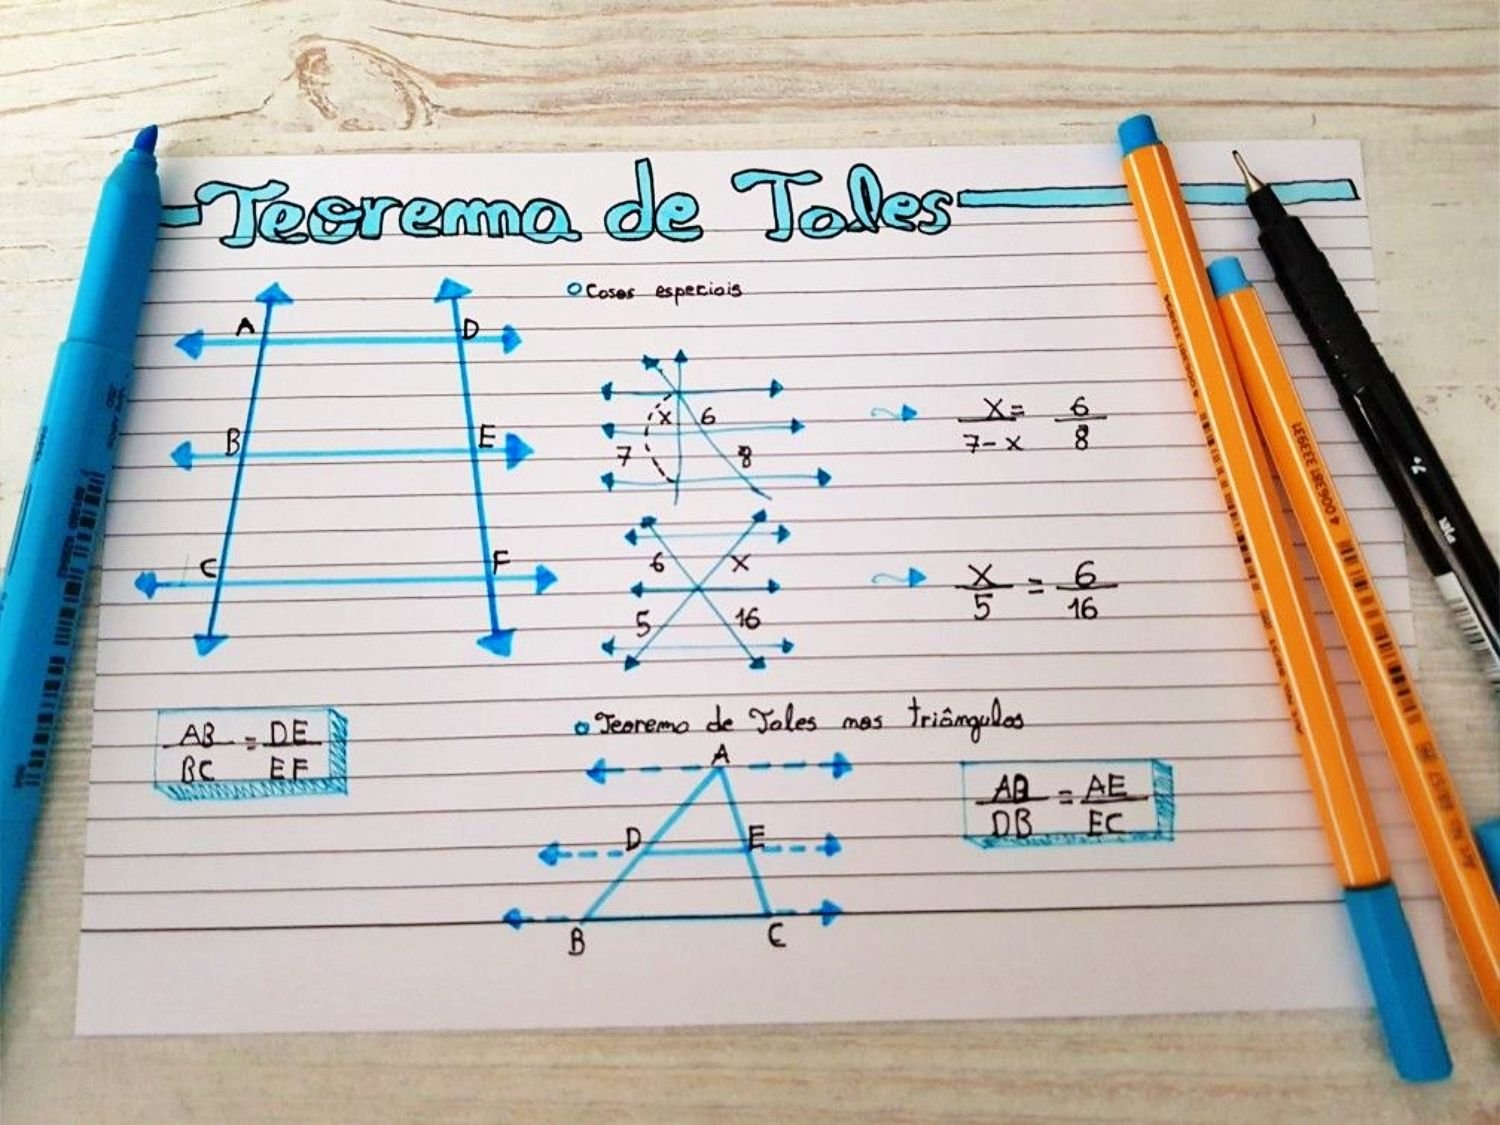 Teorema de Tales
A
D
B
E
C
F
AB = DE
BC EF
Casos especiais
x 6
7 8
x = 6
7-x 8
6 x
5 16
x = 6
5 16
Teorema de Tales nos triângulos
A
D E
B C
AD = AE
DB EC